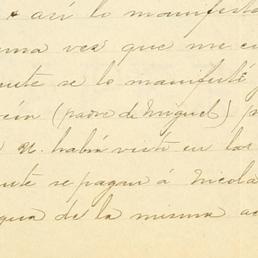 así lo manifesté
una vez que me en
nte se lo manifesté
(padre de Miguel)
U. había visto en las
nte se pagan á Nicola
gua de la misma